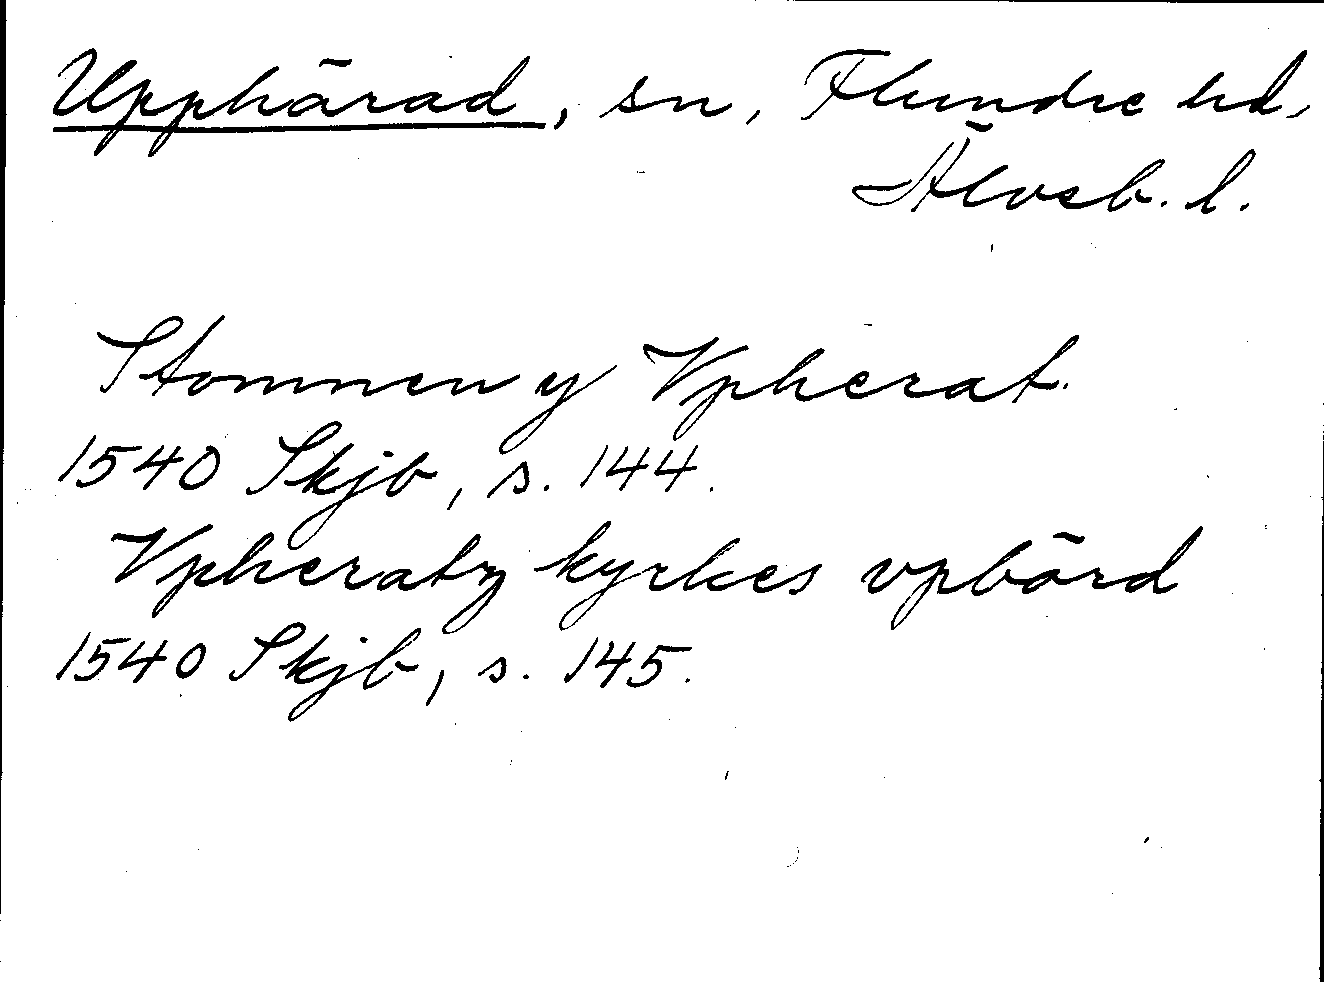 Upphärad, sn, Flundre hd,
Älvsb. l.
Stommen y Vpherat.
1540 Skjb, s. 144.
Vpheratz kyrkes vpbörd
1540 Skjb, s. 145.